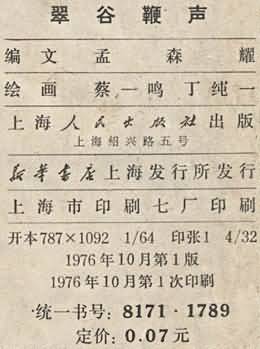 翠谷鞭声
编文 孟森耀
绘画 蔡一鸣 丁纯一
上海人民出版社出版
上海绍兴路五号
新华书店上海发行所发行
上海市印刷七厂印刷
开本787×1092 1/64 印张1 4/32
1976年10月第1版
1976年10月第1次印刷
·统一书号：8171·1789
定价：0.07元